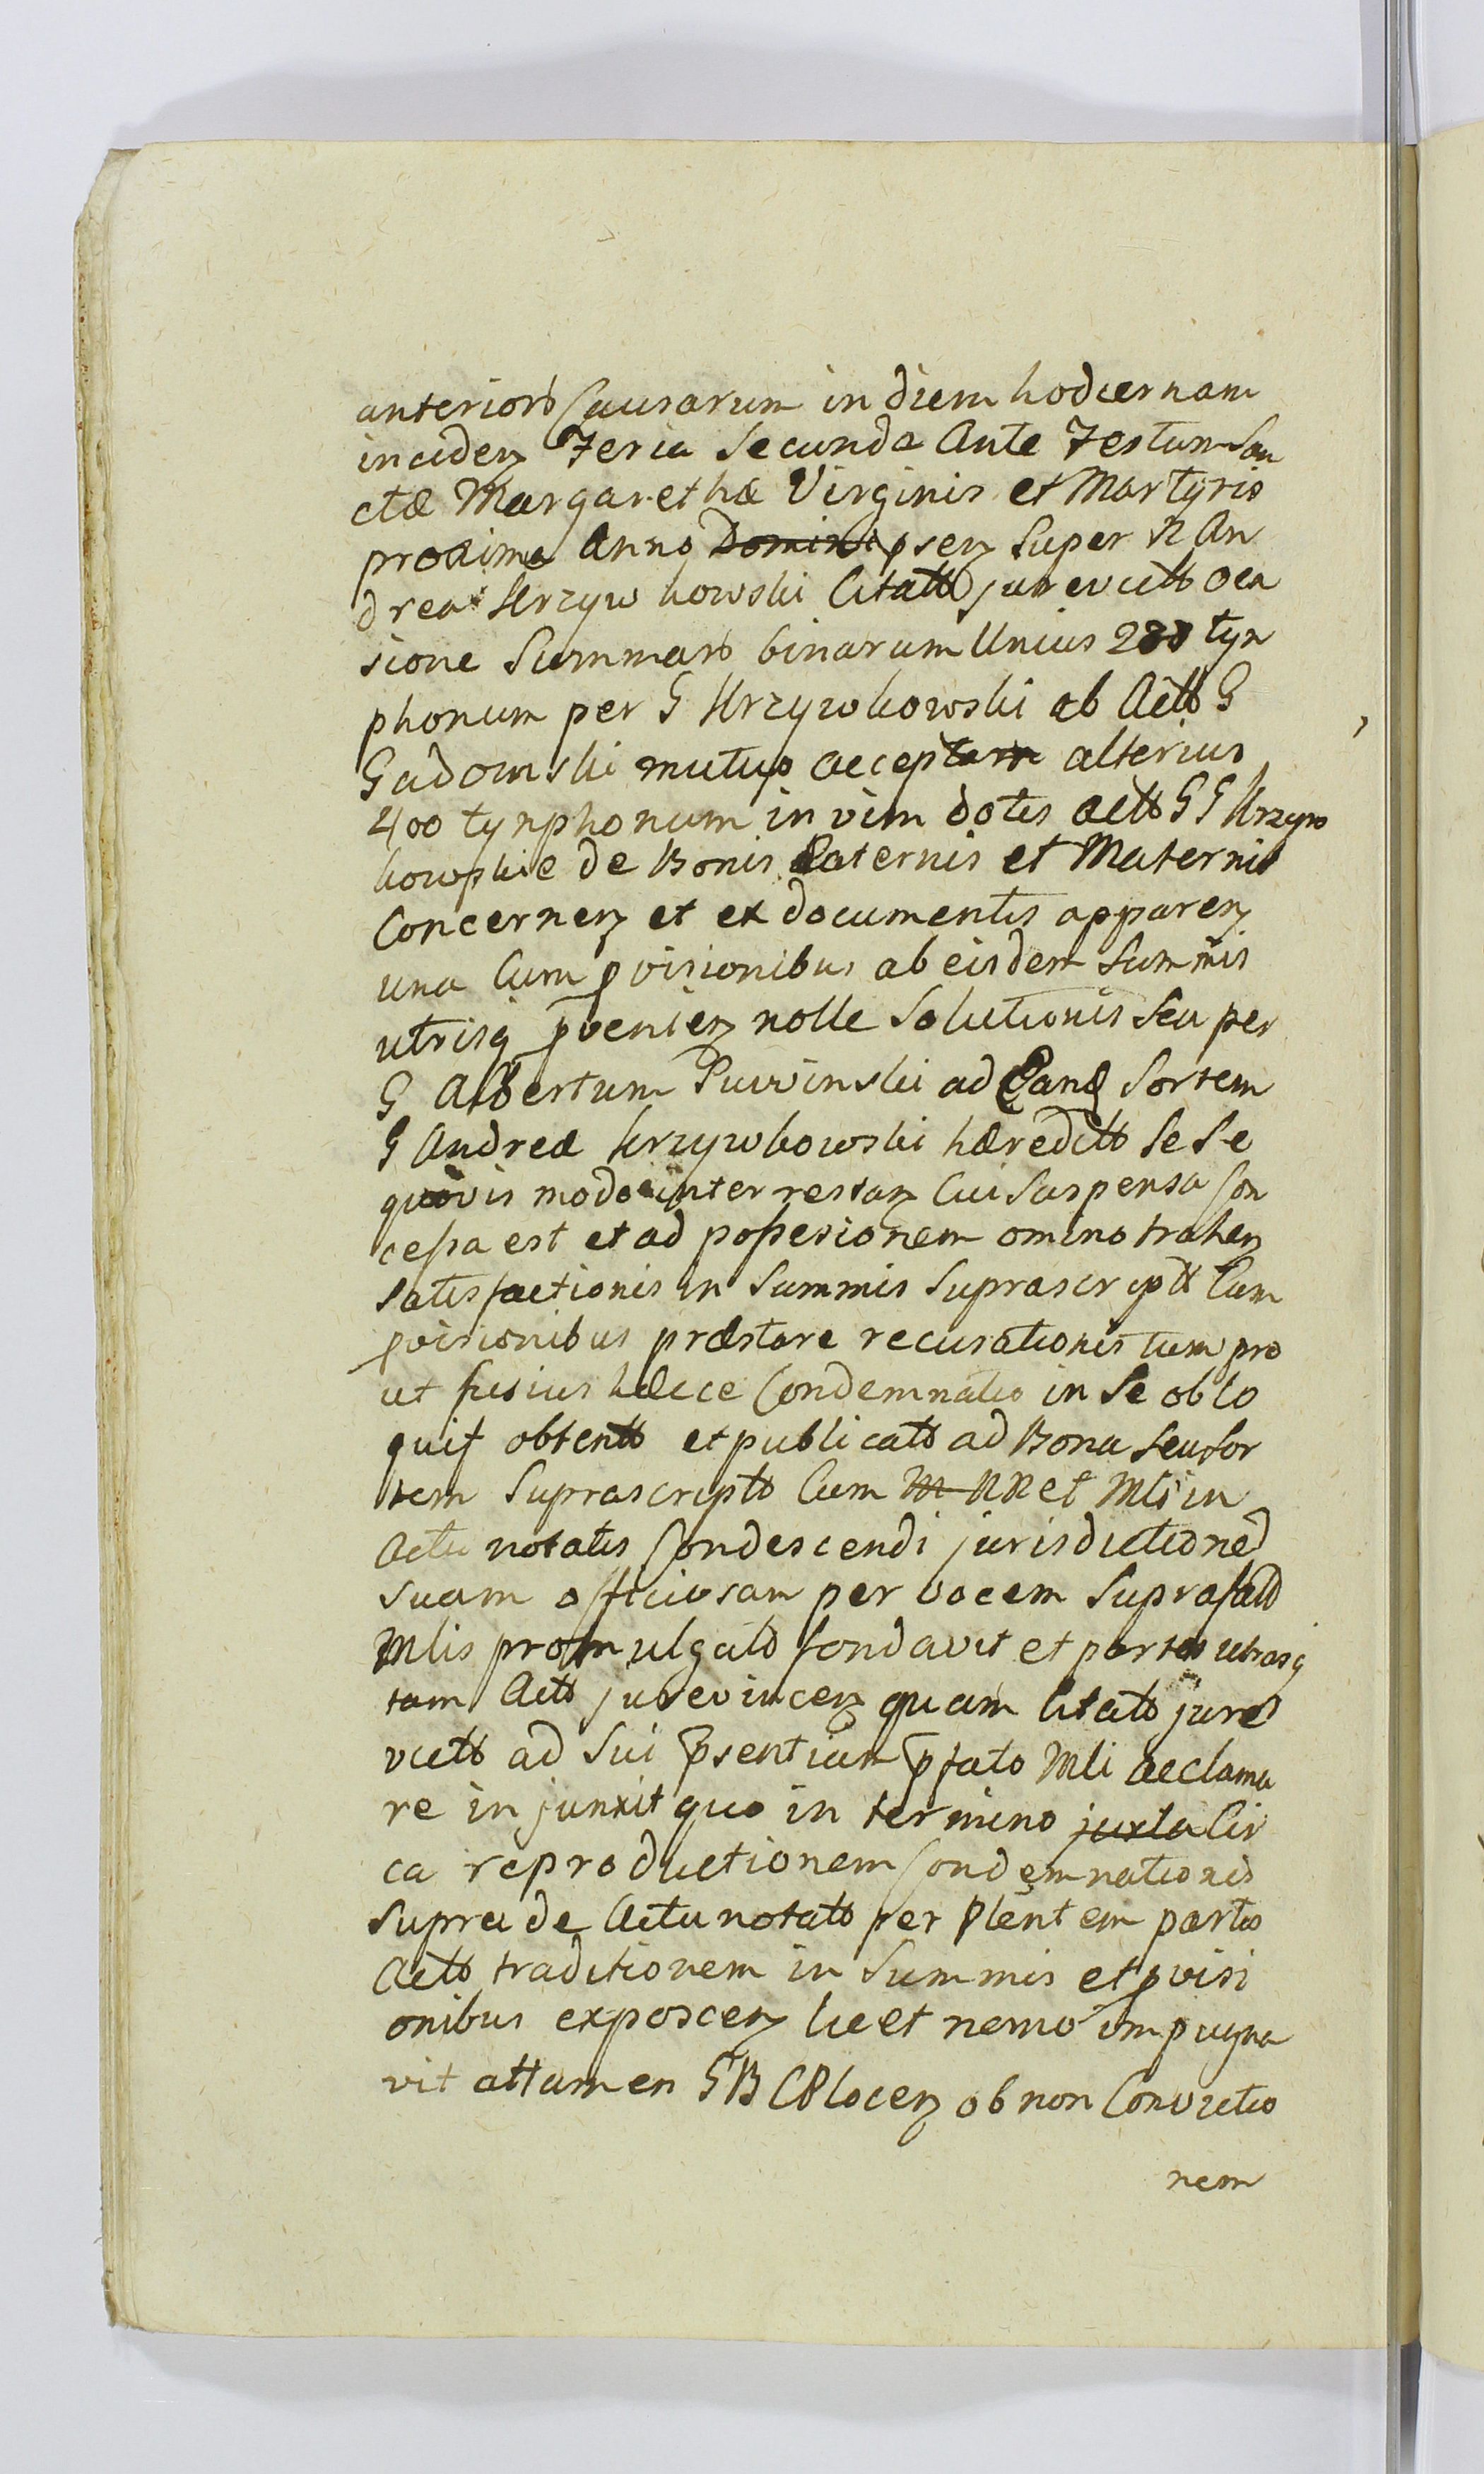 anteriorb Causarum in diem hodiernam
inciden Feria Secunda Ante Festum San
ctæ Margarethæ Virginis et Martyris
proxima Anno Domini psen Super N An
drea Krzywkowski Citatto jurevictto oca
sione Summarb binarum Unius 280 tyn
phonum per G Krzywkowski ab Actto G
Gadomski mutuo acceptam alterius
400 tynphonum in vim dotis actto GG Krzyw
kowskie de Bonis Paternis et Maternis
Concernen et ex documentis apparen
una Cum pvisionibus ab eisdem Summis
utrisq pvenien nolle Solutionis Seu per
G Albertum Puwinski ad Eand Sortem
G Andreæ Krzywkowski hæreditto Se Se
quovis modo interressan Cui Suspensa Con
cessa est et ad possesionem omino trahen
Satisfactionis in Summis Suprascriptt Cum
pvisionibus præstare recusationis tum pro
ut fusius hæcce Condemnatio in Se oblo
quit obtentto et publicatto ad Bona Seu Sor
tem Suprascriptto Cum M RR et Mli in
Actu notatis Condescendi jurisdictioned
suam officiosam per vocem Suprafatd
Mlis promulgatd fondavit et partes utrasq
tam Actto jurevincen quam Citatto jure
victto ad Sui psentiam pfato Mli acclama
re injunxit quo in termino juxta Cir
ca reproductionem Condemnationis
Supra de Actu notatto per Plentem partis
Actto traditionem in Summis et pvisi
onibus exposcen licet nemo impugna
vit attamen GB CPlocen ob non Convictio
nem